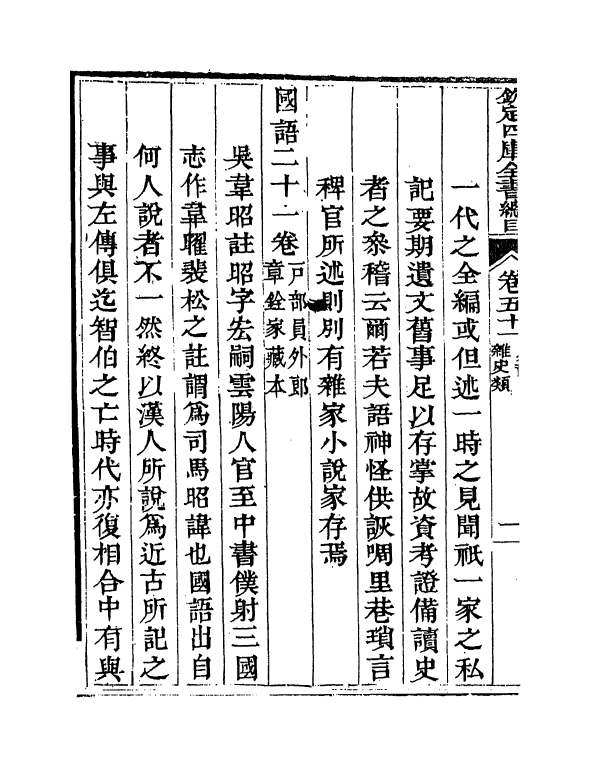 欽定四庫全書總目 卷五十一 雜史類 一
一代之全編或但述一時之見聞衹一家之私
記要期遺文舊事足以存掌故資考證備讀史
者之參稽云爾若夫語神怪供詼啁里巷瑣言
稗官所述則別有雜家小說家存焉
國語二十一卷戶部員外郎章銓家藏本
吳韋昭註昭字宏嗣雲陽人官至中書僕射三國
志作韋曜裴松之註謂爲司馬昭諱也國語出自
何人說者不一然終以漢人所說爲近古所記之
事與左傳俱迄智伯之亡時代亦復相合中有與